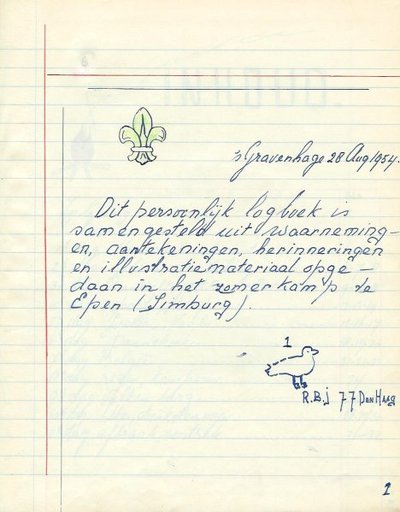 's Gravenhage 28 Aug 1954.
Dit persoonlijk logboek is
samengesteld uit waarneming-
en, aantekeningen, herinneringen
en illustratiemateriaal opge-
daan in het zomerkamp te
Epen (Limburg).
1
R.B.j 77 Den Haag
1